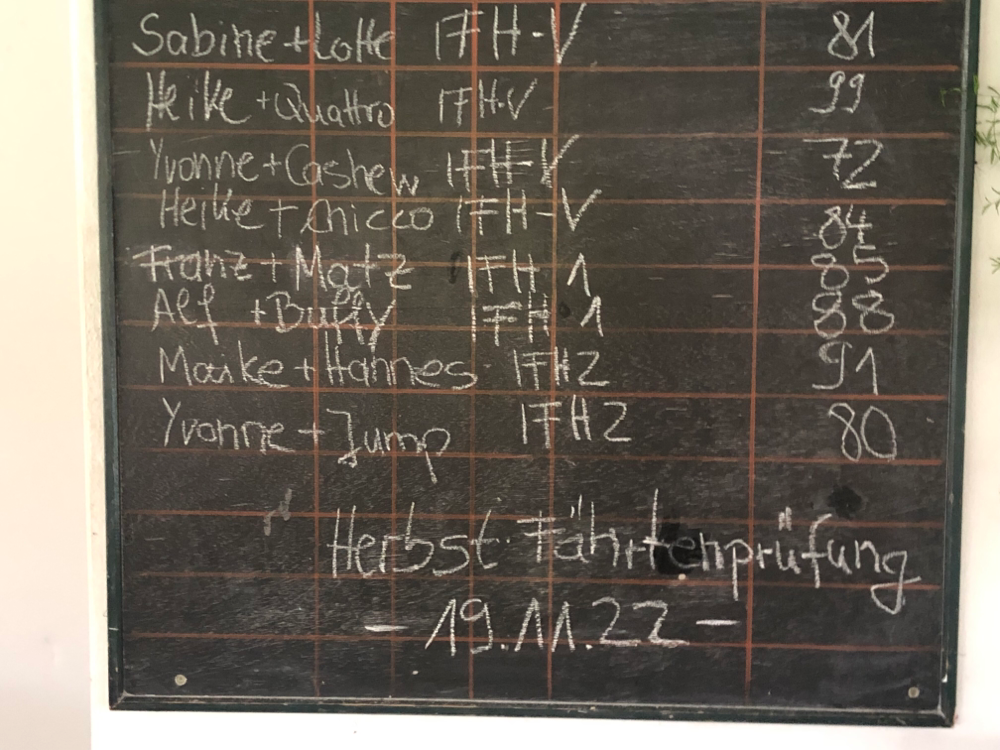 Sabine + Lotte IFH-V 81
Heike + Quattro IFH-V 99
Yvonne + Cashew IFH-V 72
Heike + Chicco IFH-V 84
Franz + Matz IFH 1 85
Alf + Buffy IFH 1 88
Maike + Hannes IFH2 91
Yvonne + Jump IFH2 80
Herbst-Fährtenprüfung
- 19.11.22 -